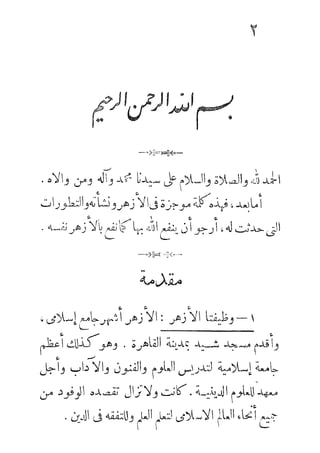 ٣
بسم الله الرحمن الرحيم
الحمد لله والصلاة والسلام على سيدنا محمد وآله ومن والاه .
أما بعد ، فهذه كلمة موجزة فى الأزهر ونشأته والتطورات
التى حدثت له ، أرجو أن ينفع الله بها كما نفع بالأزهر نفسه .
مقدمة
١ – وظيفتا الأزهر : الأزهر أشهر جامع إسلامى ،
وأقدم مسجد شيد بمدينة القاهرة . وهو كذلك أعظم
جامعة إسلامية لتدريس العلوم والفنون والآداب وأجل
معهد للعلوم الدينية . كانت ولا تزال تقصده الوفود من
جميع أنحاء العالم الاسلامى لتعلم العلم وللتفقه فى الدين .